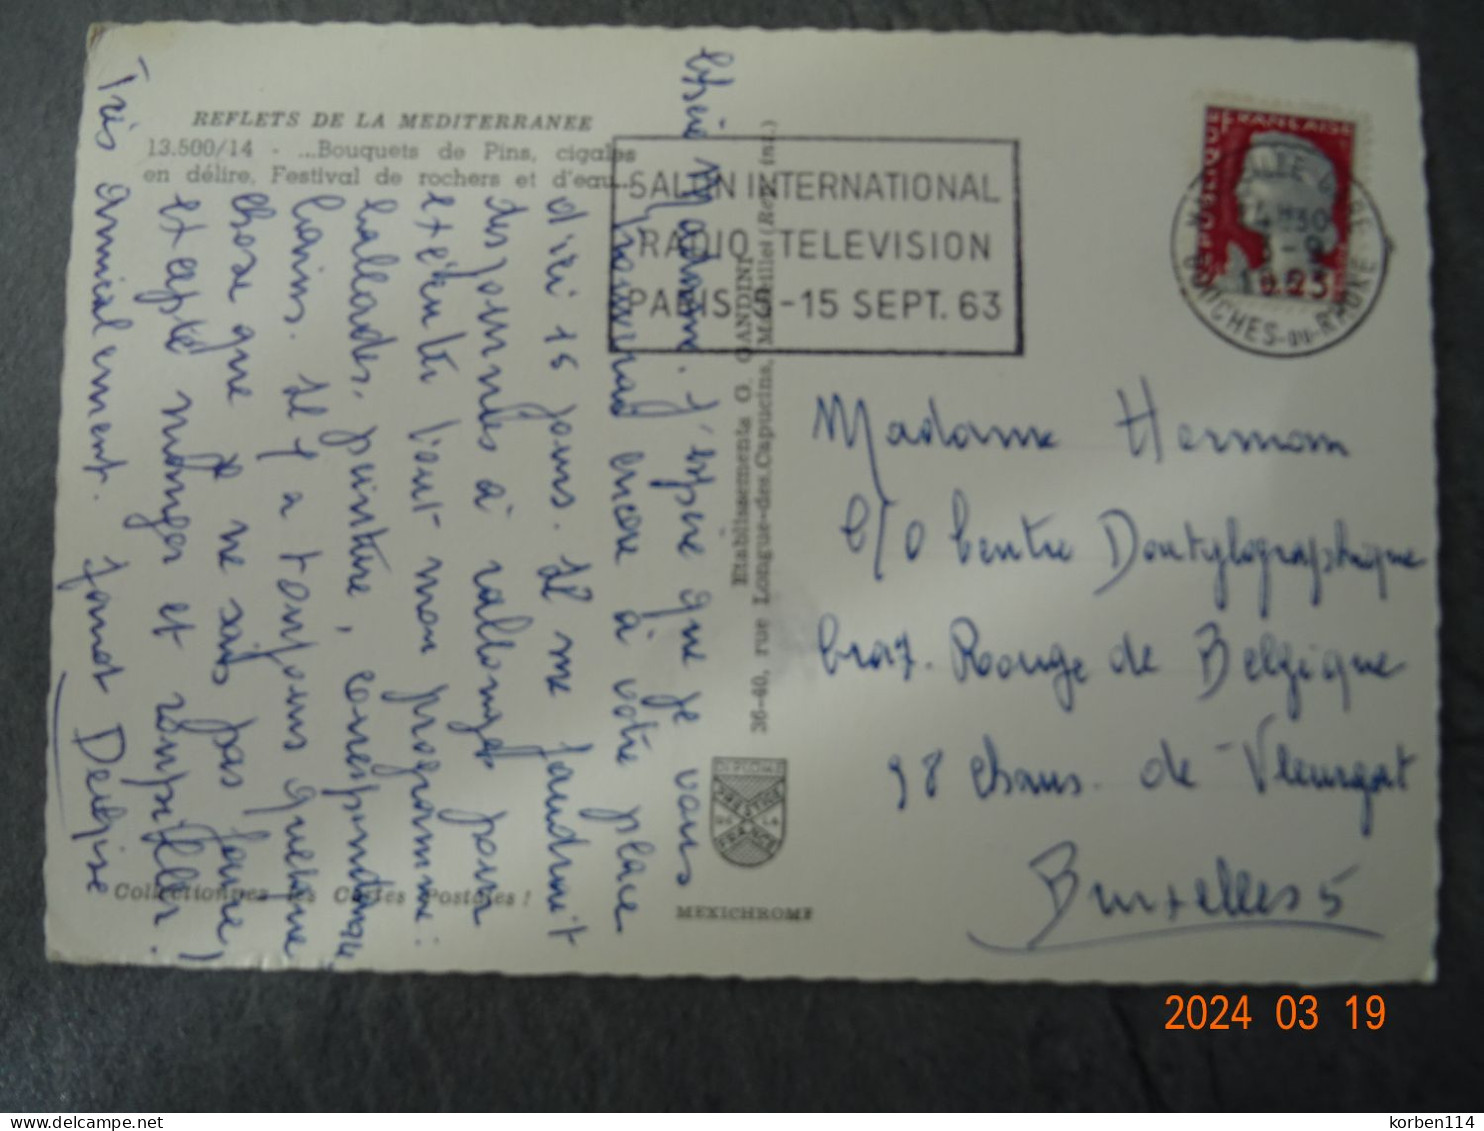 REFLETS DE LA MEDITERRANEE
13.500/14 - ...Bouquets de Pins, cigales
en délire, Festival de rochers et d'eau...
SALON INTERNATIONAL
RADIO TELEVISION
PARIS 5-15 SEPT. 63
REPUBLIQUE FRANÇAISE
BOUCHES-DU-RHONE
Chère Madame. J'espère que je vous
trouverai encore à votre place
d'ici 15 jours. Il me faudrait
des journées à rallonges pour
exécuter tout mon programme:
ballades, peinture, correspondance,
bains. Il y a toujours quelque
chose que je ne sais pas faire,
excepté manger et roupiller.
Très amicalement.
Denyse
Etablissements O. GANDINI
36-40, rue Longue-des-Capucins, Marseille
DIPLOME
PRESTIGE
FRANCE
MEXICHROME
Collectionnez les Cartes Postales !
Madame Hermam
c/o Centre Dactylographique
Croix-Rouge de Belgique
98 Chaus. de Vleurgat
Bruxelles 5
2024 03 19
delcampe.net
korben114